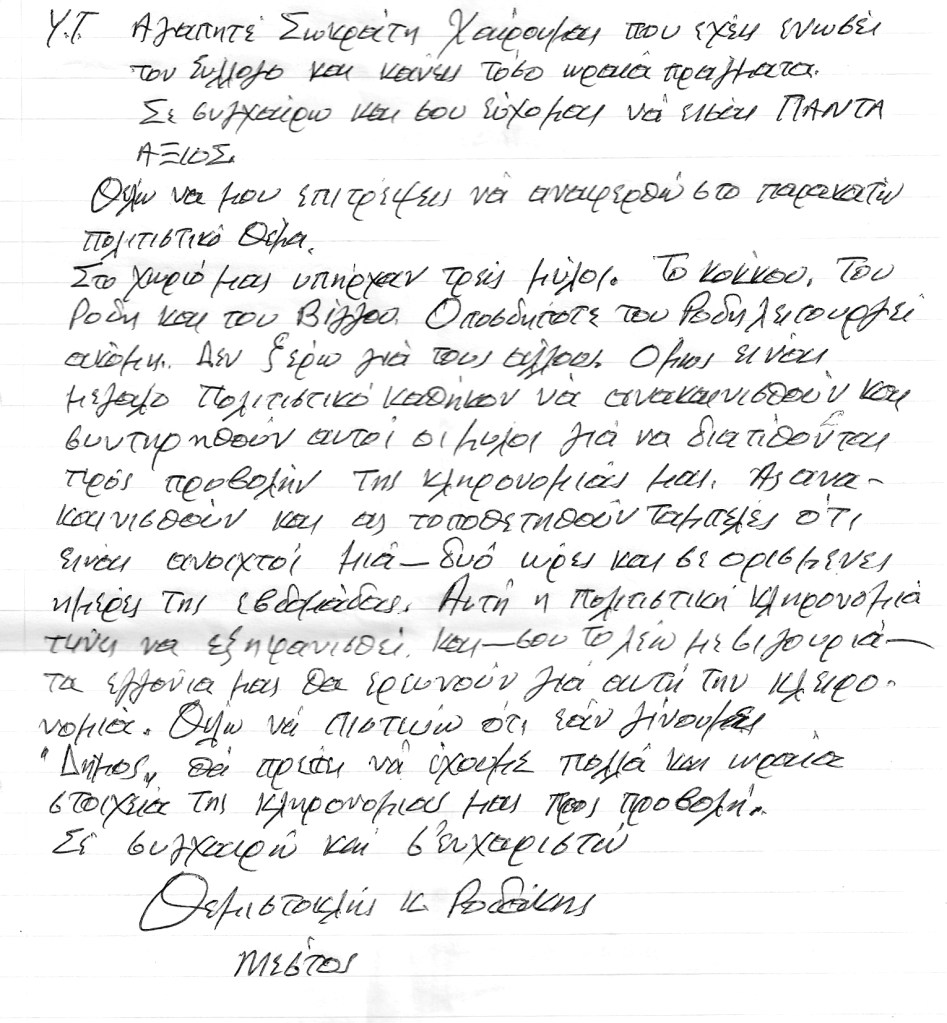 Υ.Γ. Αγαπητέ Σωκράτη Χαίρομαι που έχεις ενώσει
τον Σύλλογο και κάνεις τόσο ωραία πράγματα.
Σε συγχαίρω και σου εύχομαι νά εισαι ΠΑΝΤΑ
ΑΞΙΟΣ.
Θέλω να μου επιτρέψεις νά αναφερθώ στο παρακάτω
πολιτιστικό θέμα.
Στο χωριό μας υπήρχαν τρείς μύλοι. Το κόκκου, του
Ροδη και του Βίγγου. Οποσδήποτε του Ροδη λειτουργεί
ακόμη. Δεν ξέρω γιά τους άλλους. Ομως ειναι
μεγαλο Πολιτιστικό καθήκον νά ανακαινισθούν και
συντηρηθούν αυτοί οι μυλοι γιά να διατίθονται
πρός προβολήν της κληρονομιάς μας. Ας ανα-
καινισθούν και ας τοποθετηθούν ταμπέλες ότι
ειναι ανοιχτοί μιά-δυό ωρες και σε ορισμένες
ημέρες της εβδομάδας. Αυτή η πολιτιστική κληρονομιά
τείνει να εξηφανισθεί. και-σου το λέω με σιγουριά-
τα εγγόνια μας θα ερευνούν γιά αυτή την κλειρο-
νομια. Θέλω νά πιστεύω ότι εάν γίνουμε
"Δήμος" θά πρέπει νά έχουμε πολλά και ωραία
στοιχεία της κληρονομιας μας προς προβολή.
Σέ συγχαιρώ και σ'ευχαριστώ
Θεμιστοκλής κ. Ροδάκης